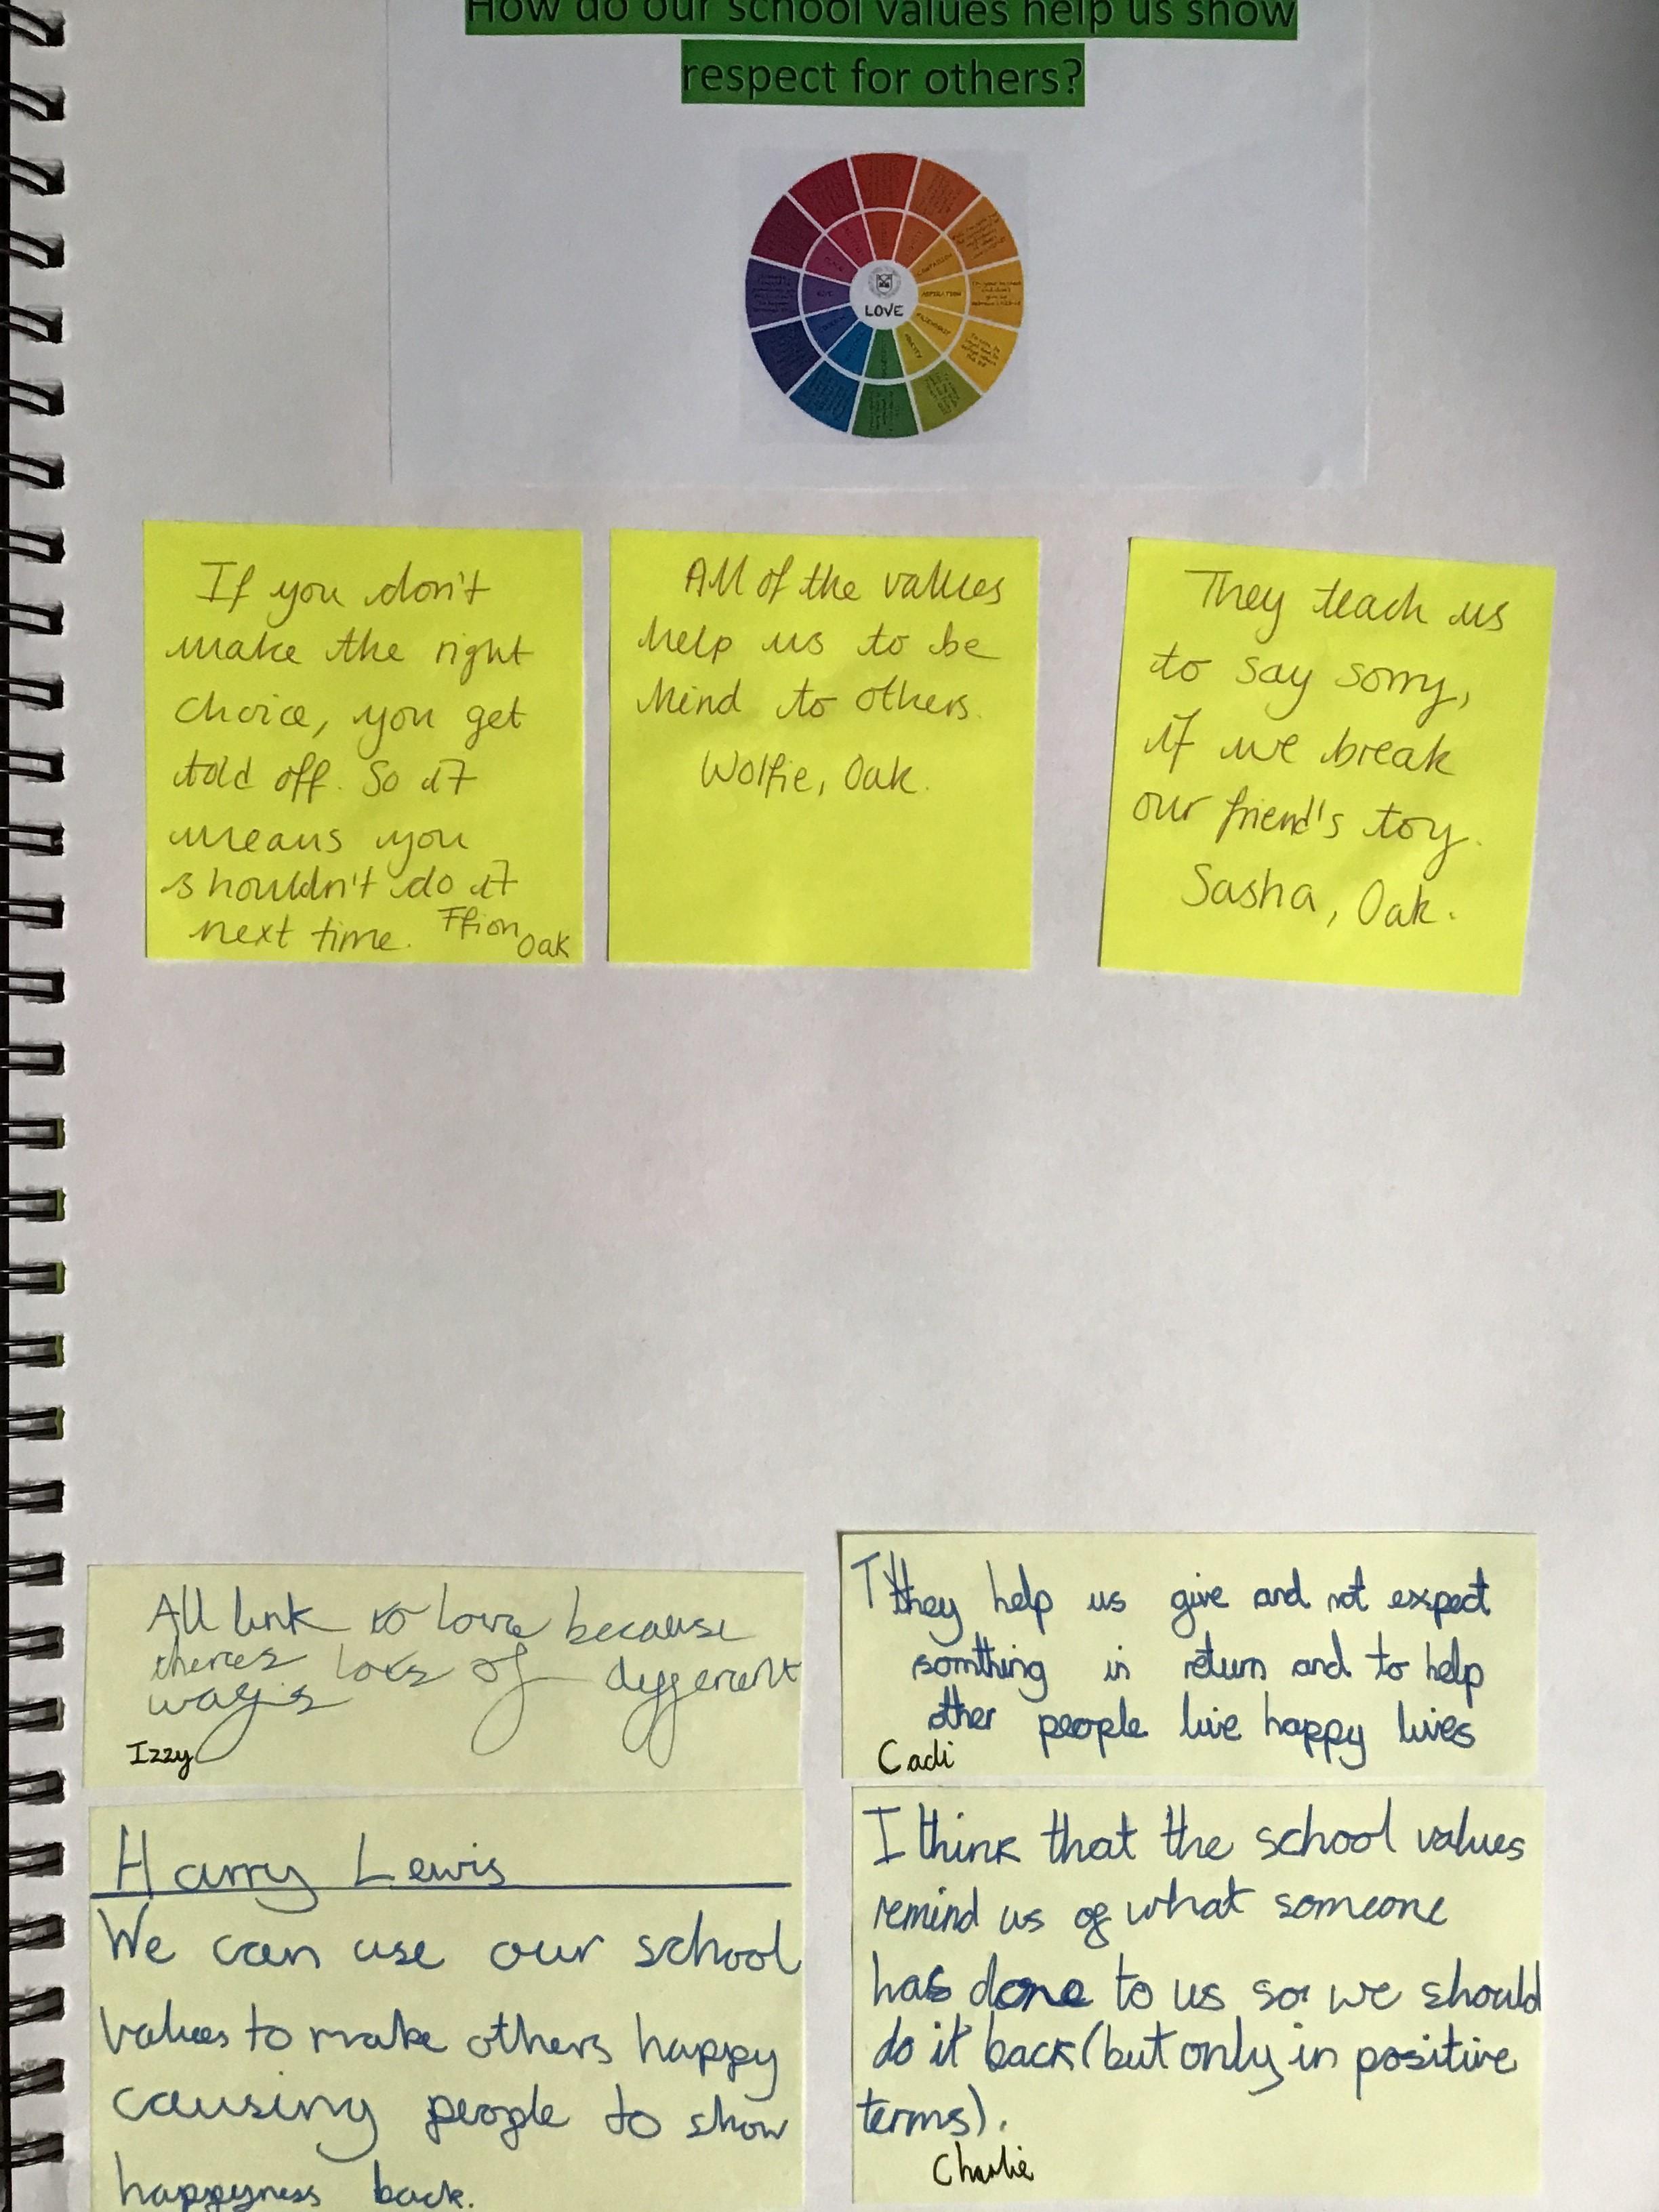 How do our school values help us show
respect for others?
COMPASSION
ASPIRATION
LOVE
If you don't
make the right
choice, you get
told off. So it
means you
shouldn't do it
next time. Ffion, Oak
All of the values
help us to be
kind to others.
Wolfie, Oak.
They teach us
to say sorry,
if we break
our friend's toy.
Sasha, Oak.
All link to love because
theres lots of different
ways
Izzy
They help us give and not expect
somthing in return and to help
other people live happy lives
Cadi
Harry Lewis
We can use our school
values to make others happy
causing people to show
happyness back.
I think that the school values
remind us of what someone
has done to us so we should
do it back (but only in positive
terms).
Charlie